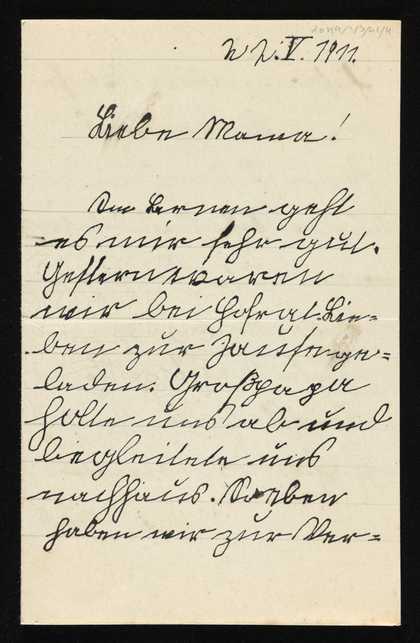 22.V.1911.
Liebe Mama!
Im Lernen geht
es mir sehr gut.
Gestern waren
wir bei Hofrat Lie-
ben zur Jause ge-
laden. Großpapa
holte uns ab und
begleitete uns
nachhaus. Soeben
haben wir zur Ver-